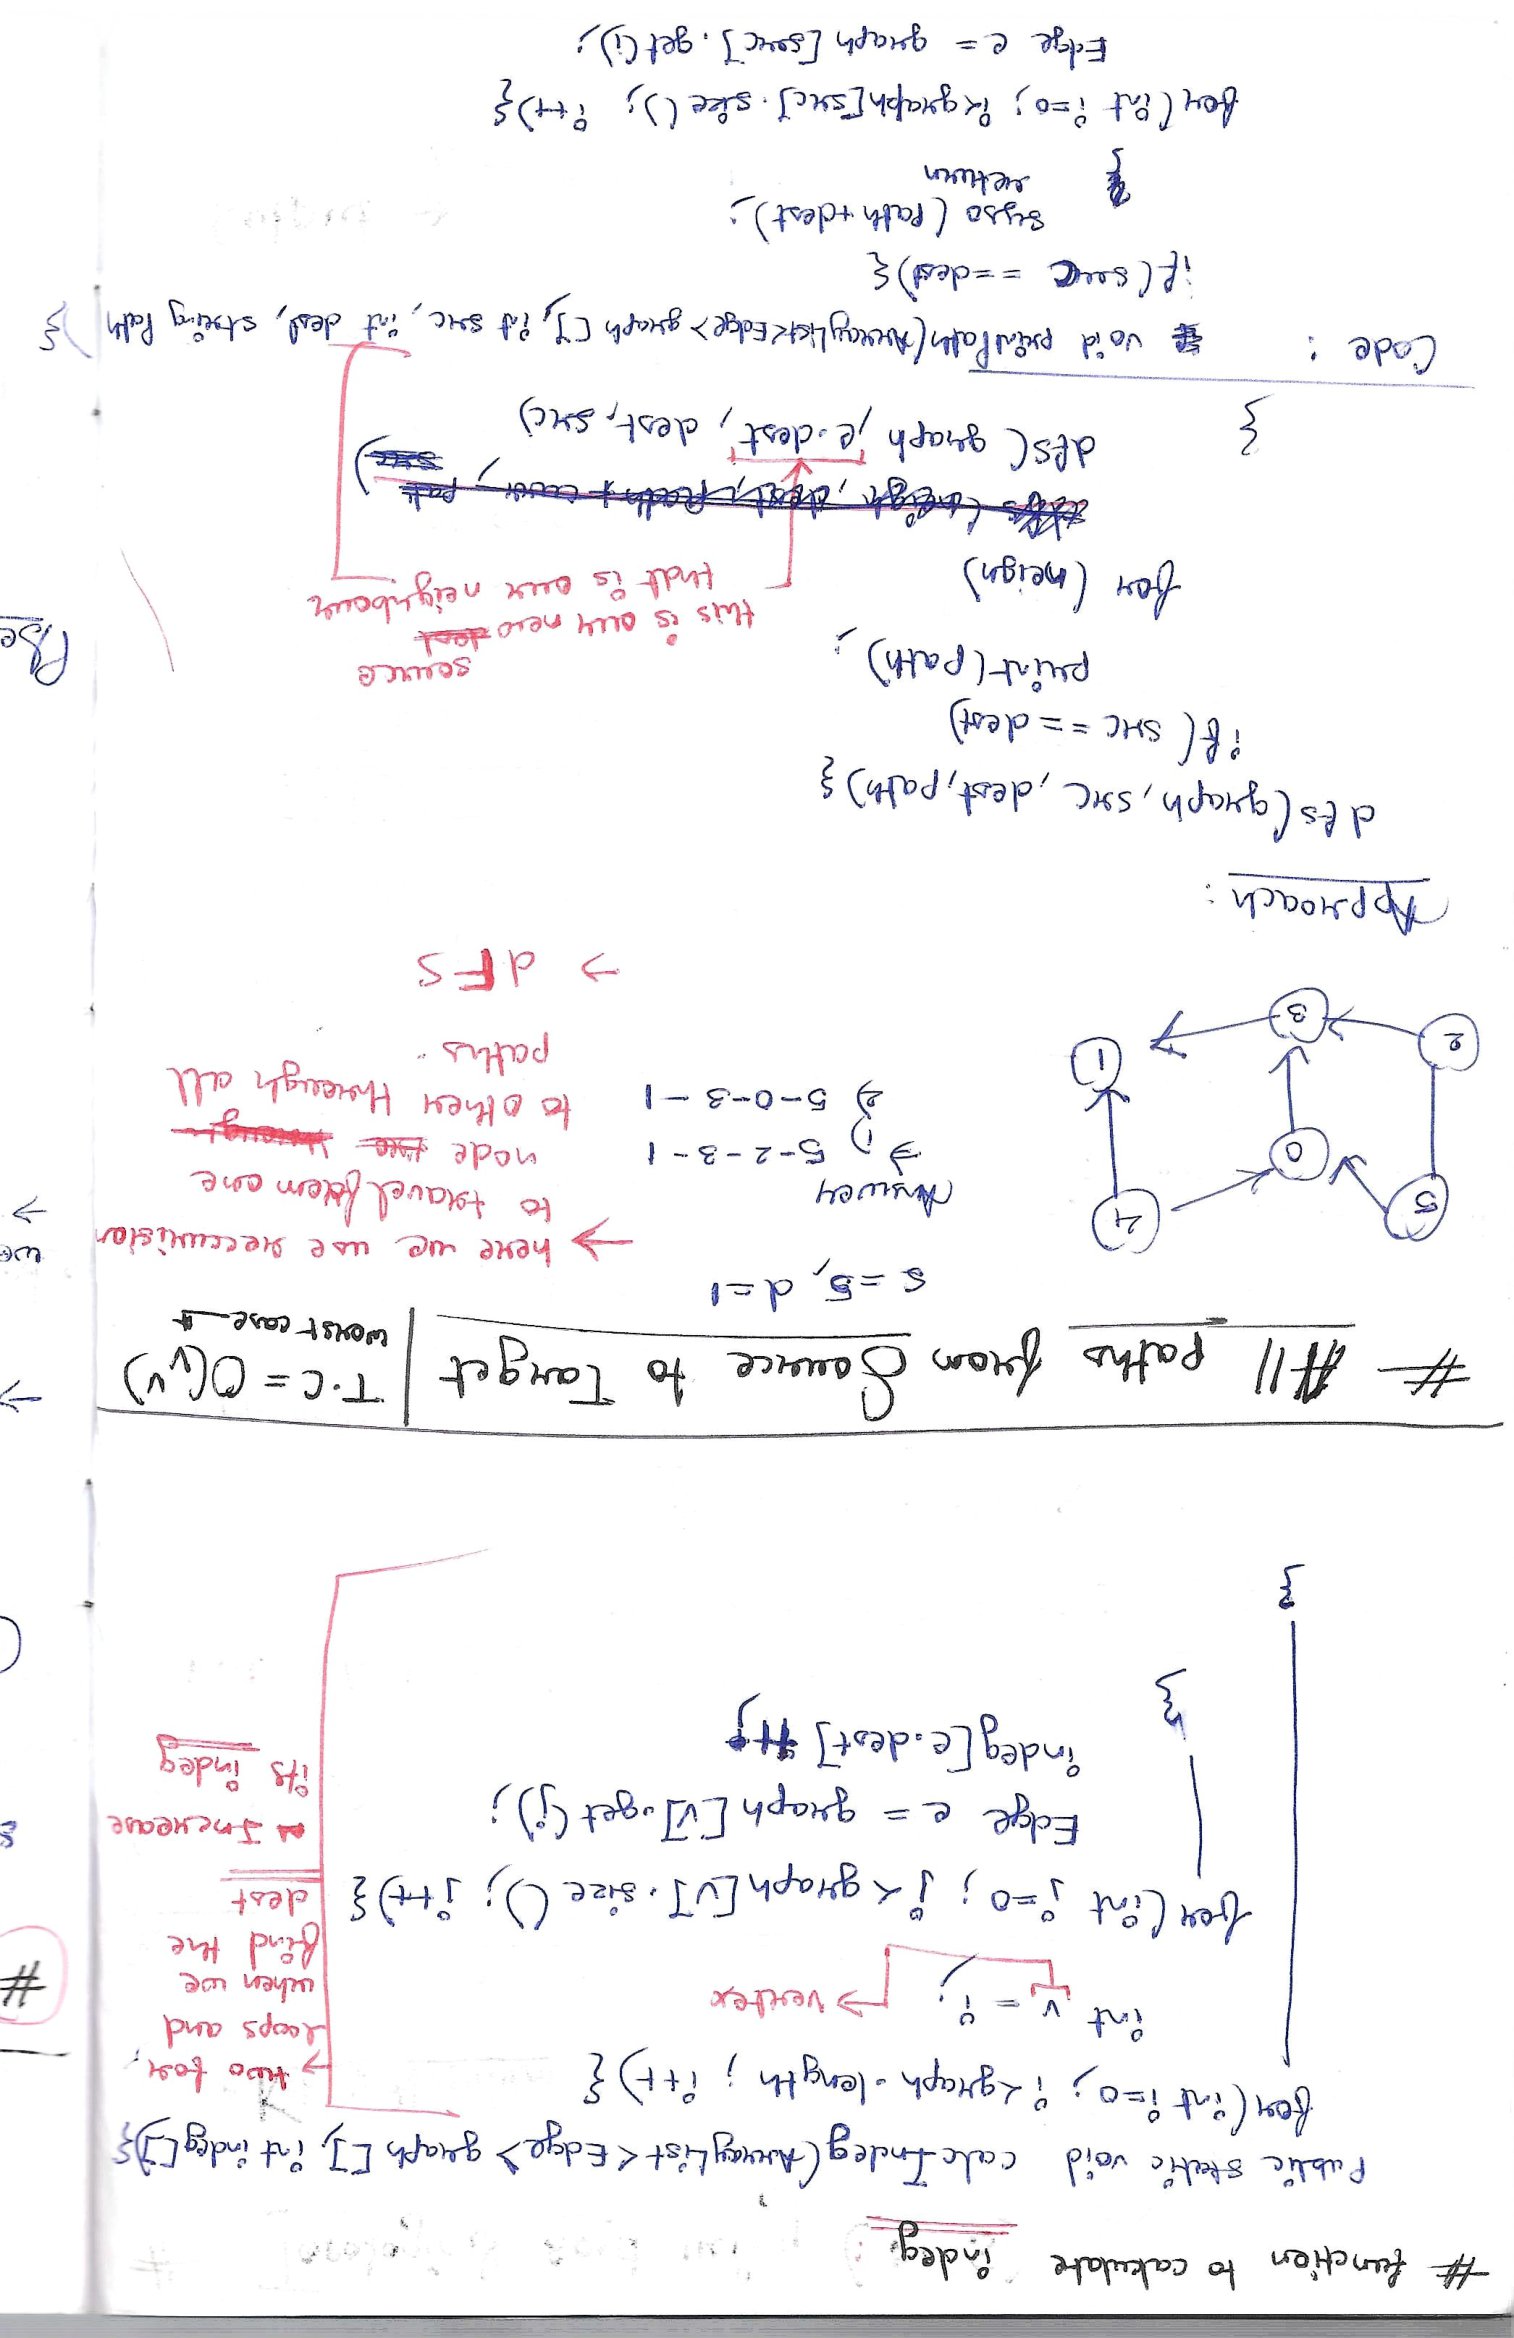 # function to calculate indeg
Public static void calcIndeg(ArrayList<Edge> graph[], int indeg[]){
for(int i=0; i<graph.length; i++){
int v = i;
→ vertex
for(int j=0; j<graph[v].size(); j++){
Edge e = graph[v].get(j);
indeg[e.dest]++;
}
}
→ two for
loops and
when we
find the
dest
Increase
its indeg
# All paths from Source to Target | T.C = O(V^V)
worst case
s=5, d=1
5
4
0
2
3
1
Answer
⇒ 1) 5-2-3-1
2) 5-0-3-1
→ here we use reccursion
to travel from one
node
to other through all
paths.
→ dFS
Approach :
dfs(graph, src, dest, path){
if( src == dest)
print(path);
for (neigh)
dfs( graph, e.dest, dest, src)
}
source
this is our new
that is our neighbour
Code : void printPath(ArrayList<Edge> graph[], int src, int dest, string path){
if(src == dest){
syso (path+dest);
return
}
for(int i=0; i<graph[src].size(); i++){
Edge e = graph[src].get(i);
#
we